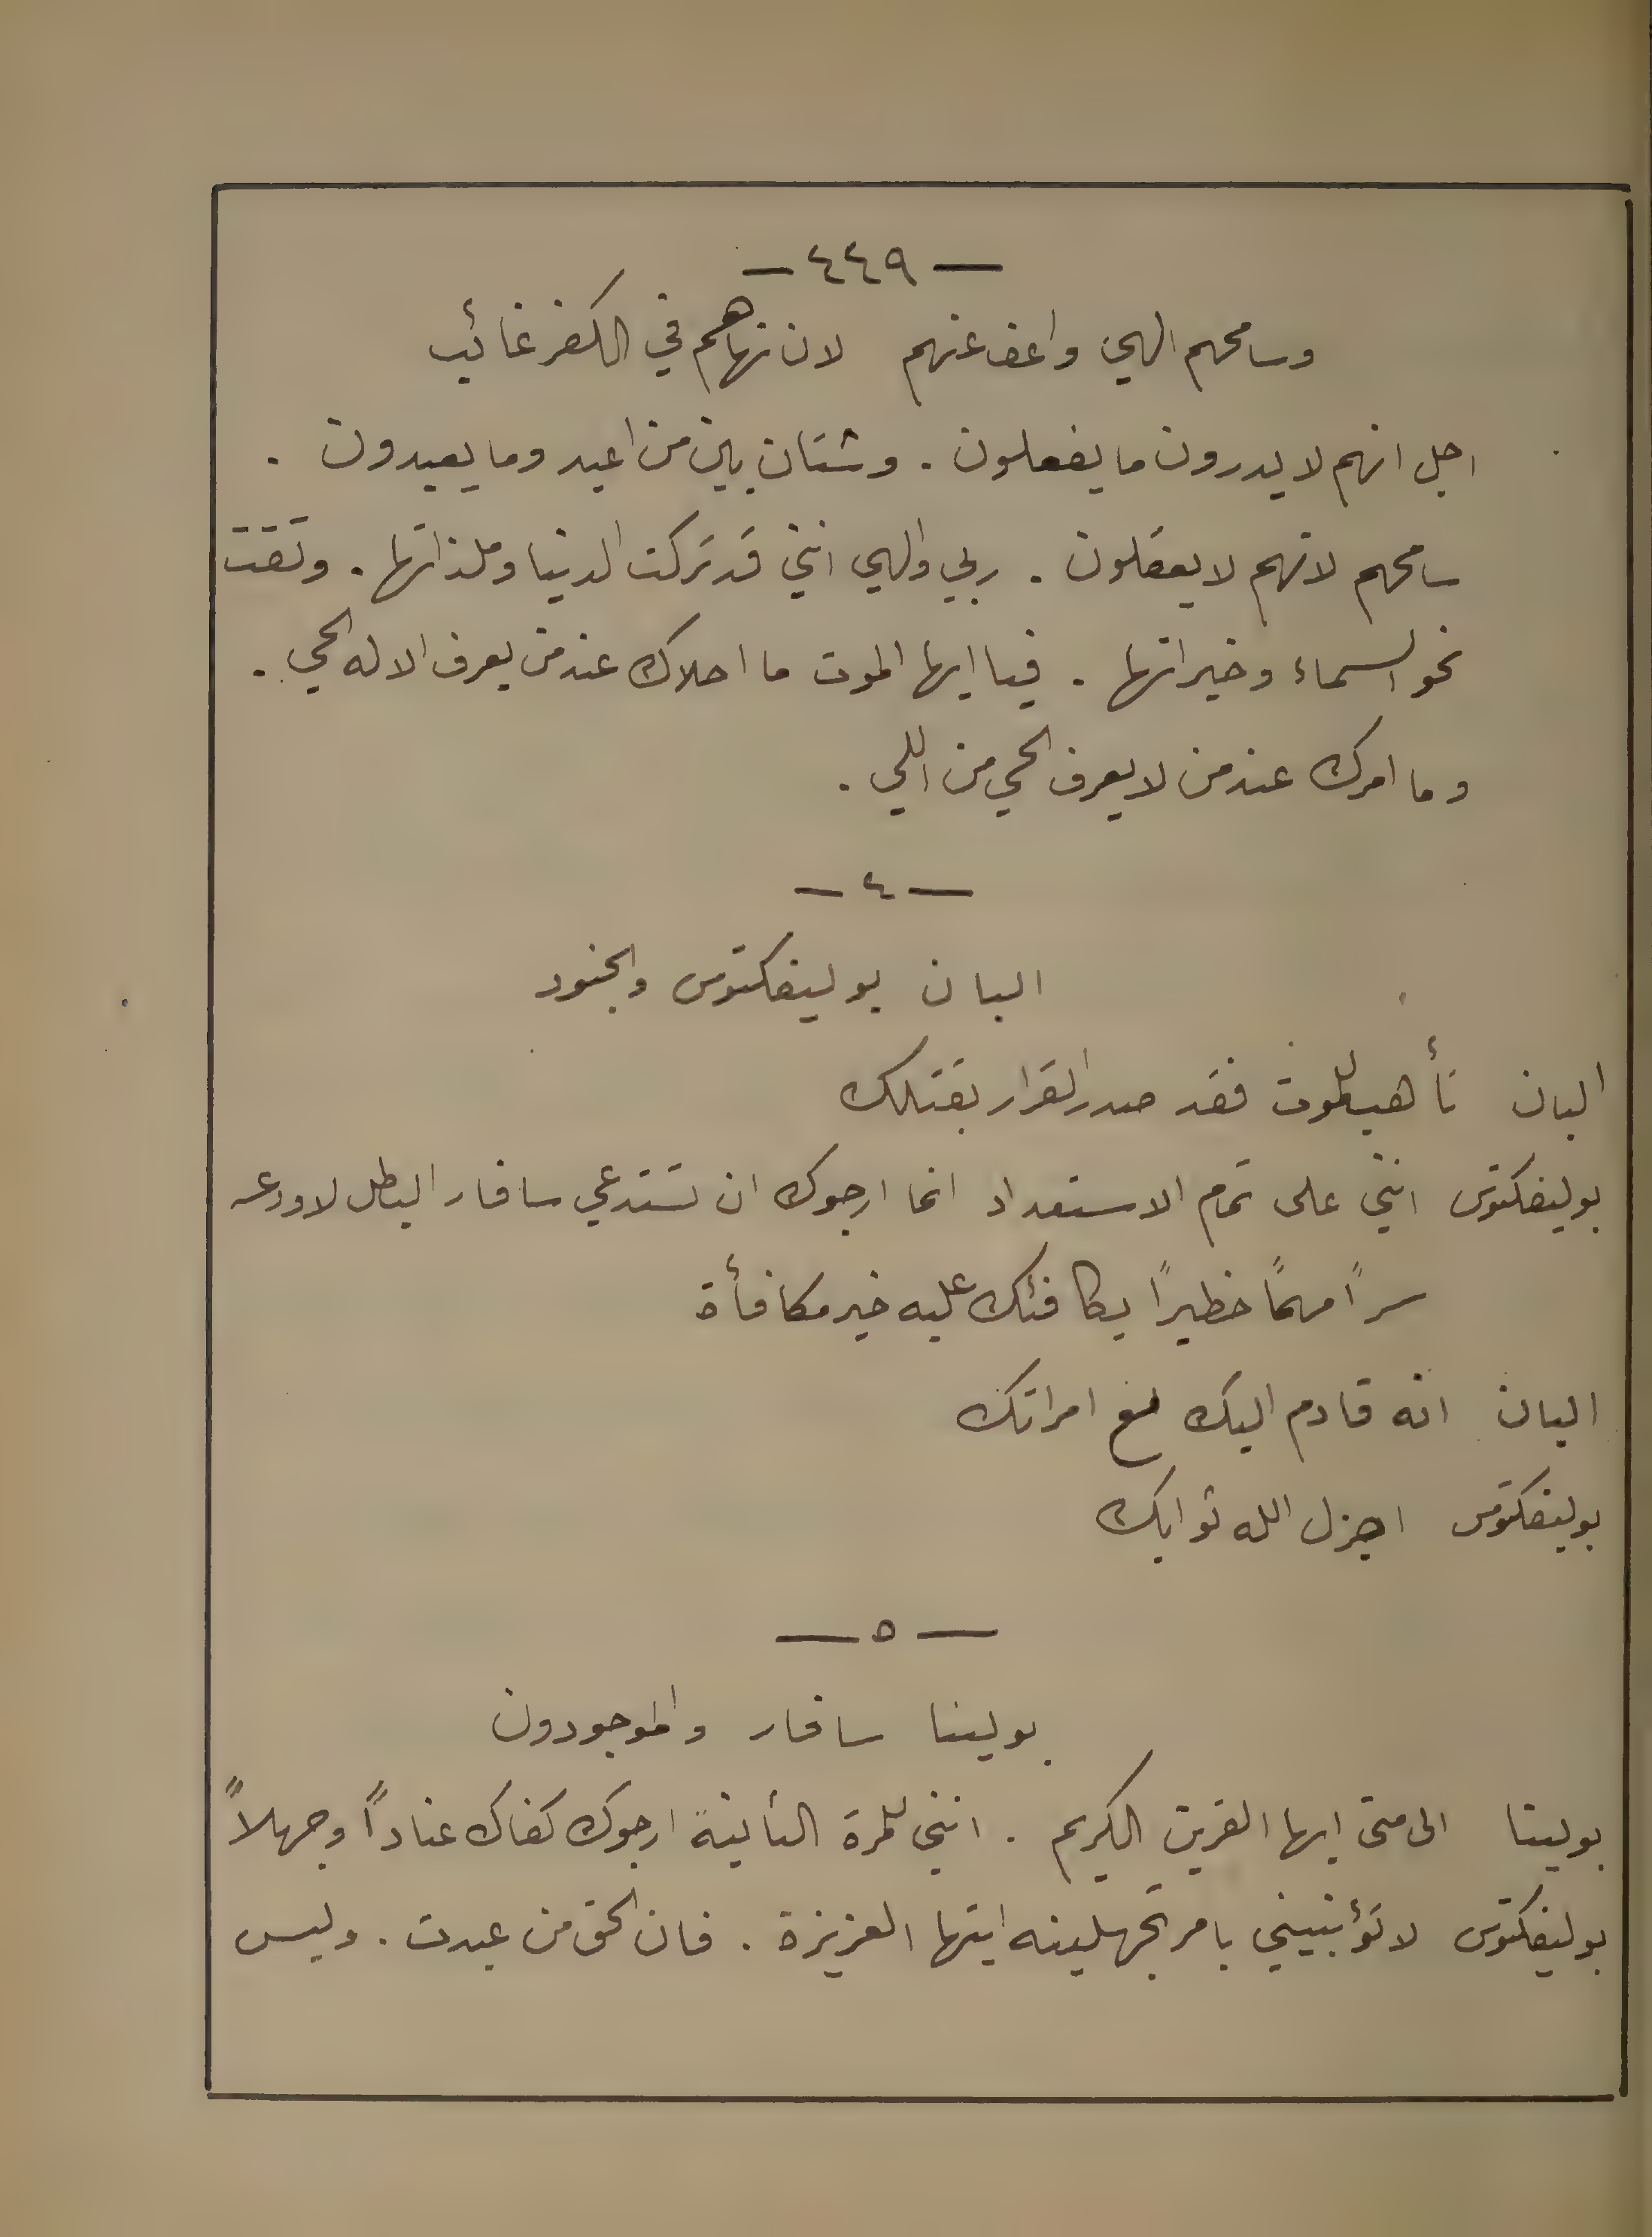 — ٤٤٩ —
وسامحهم الهي واعف عنهم لان نهاهم في الكفر غائب
اجل انهم لا يدرون ما يفعلون . وشتان بين من اعبد وما يعبدون .
سامحهم لانهم لا يعقلون . ربي والهي انني قد تركت الدنيا وملذاتها . وتقت
نحو السماء وخيراتها . فيا ايها الموت ما احلاك عند من يعرف الاله الحي .
وما امرك عند من لا يعرف الحي من اللي .
— ٤ —
البان بوليفكتوس والجنود
البان تأهب للموت فقد صدر القرار بقتلك
بوليفكتوس انني على تمام الاستعداد انما ارجوك ان تستدعي سافار البطل لاودعه
سراً مهماً خطيراً يكافئك عليه خير مكافأة
البان انه قادم اليك مع امراتك
بوليفكتوس اجزل الله ثوابك
— ٥ —
بولينا سافار والموجودون
بولينا الى متى ايها القرين الكريم . انني للمرة الثانية ارجوك كفاك عناداً وجهلاً
بوليفكتوس لا تؤنبيني بامر تجهلينه ايتها العزيزة . فان الحق من عبدت . وليس